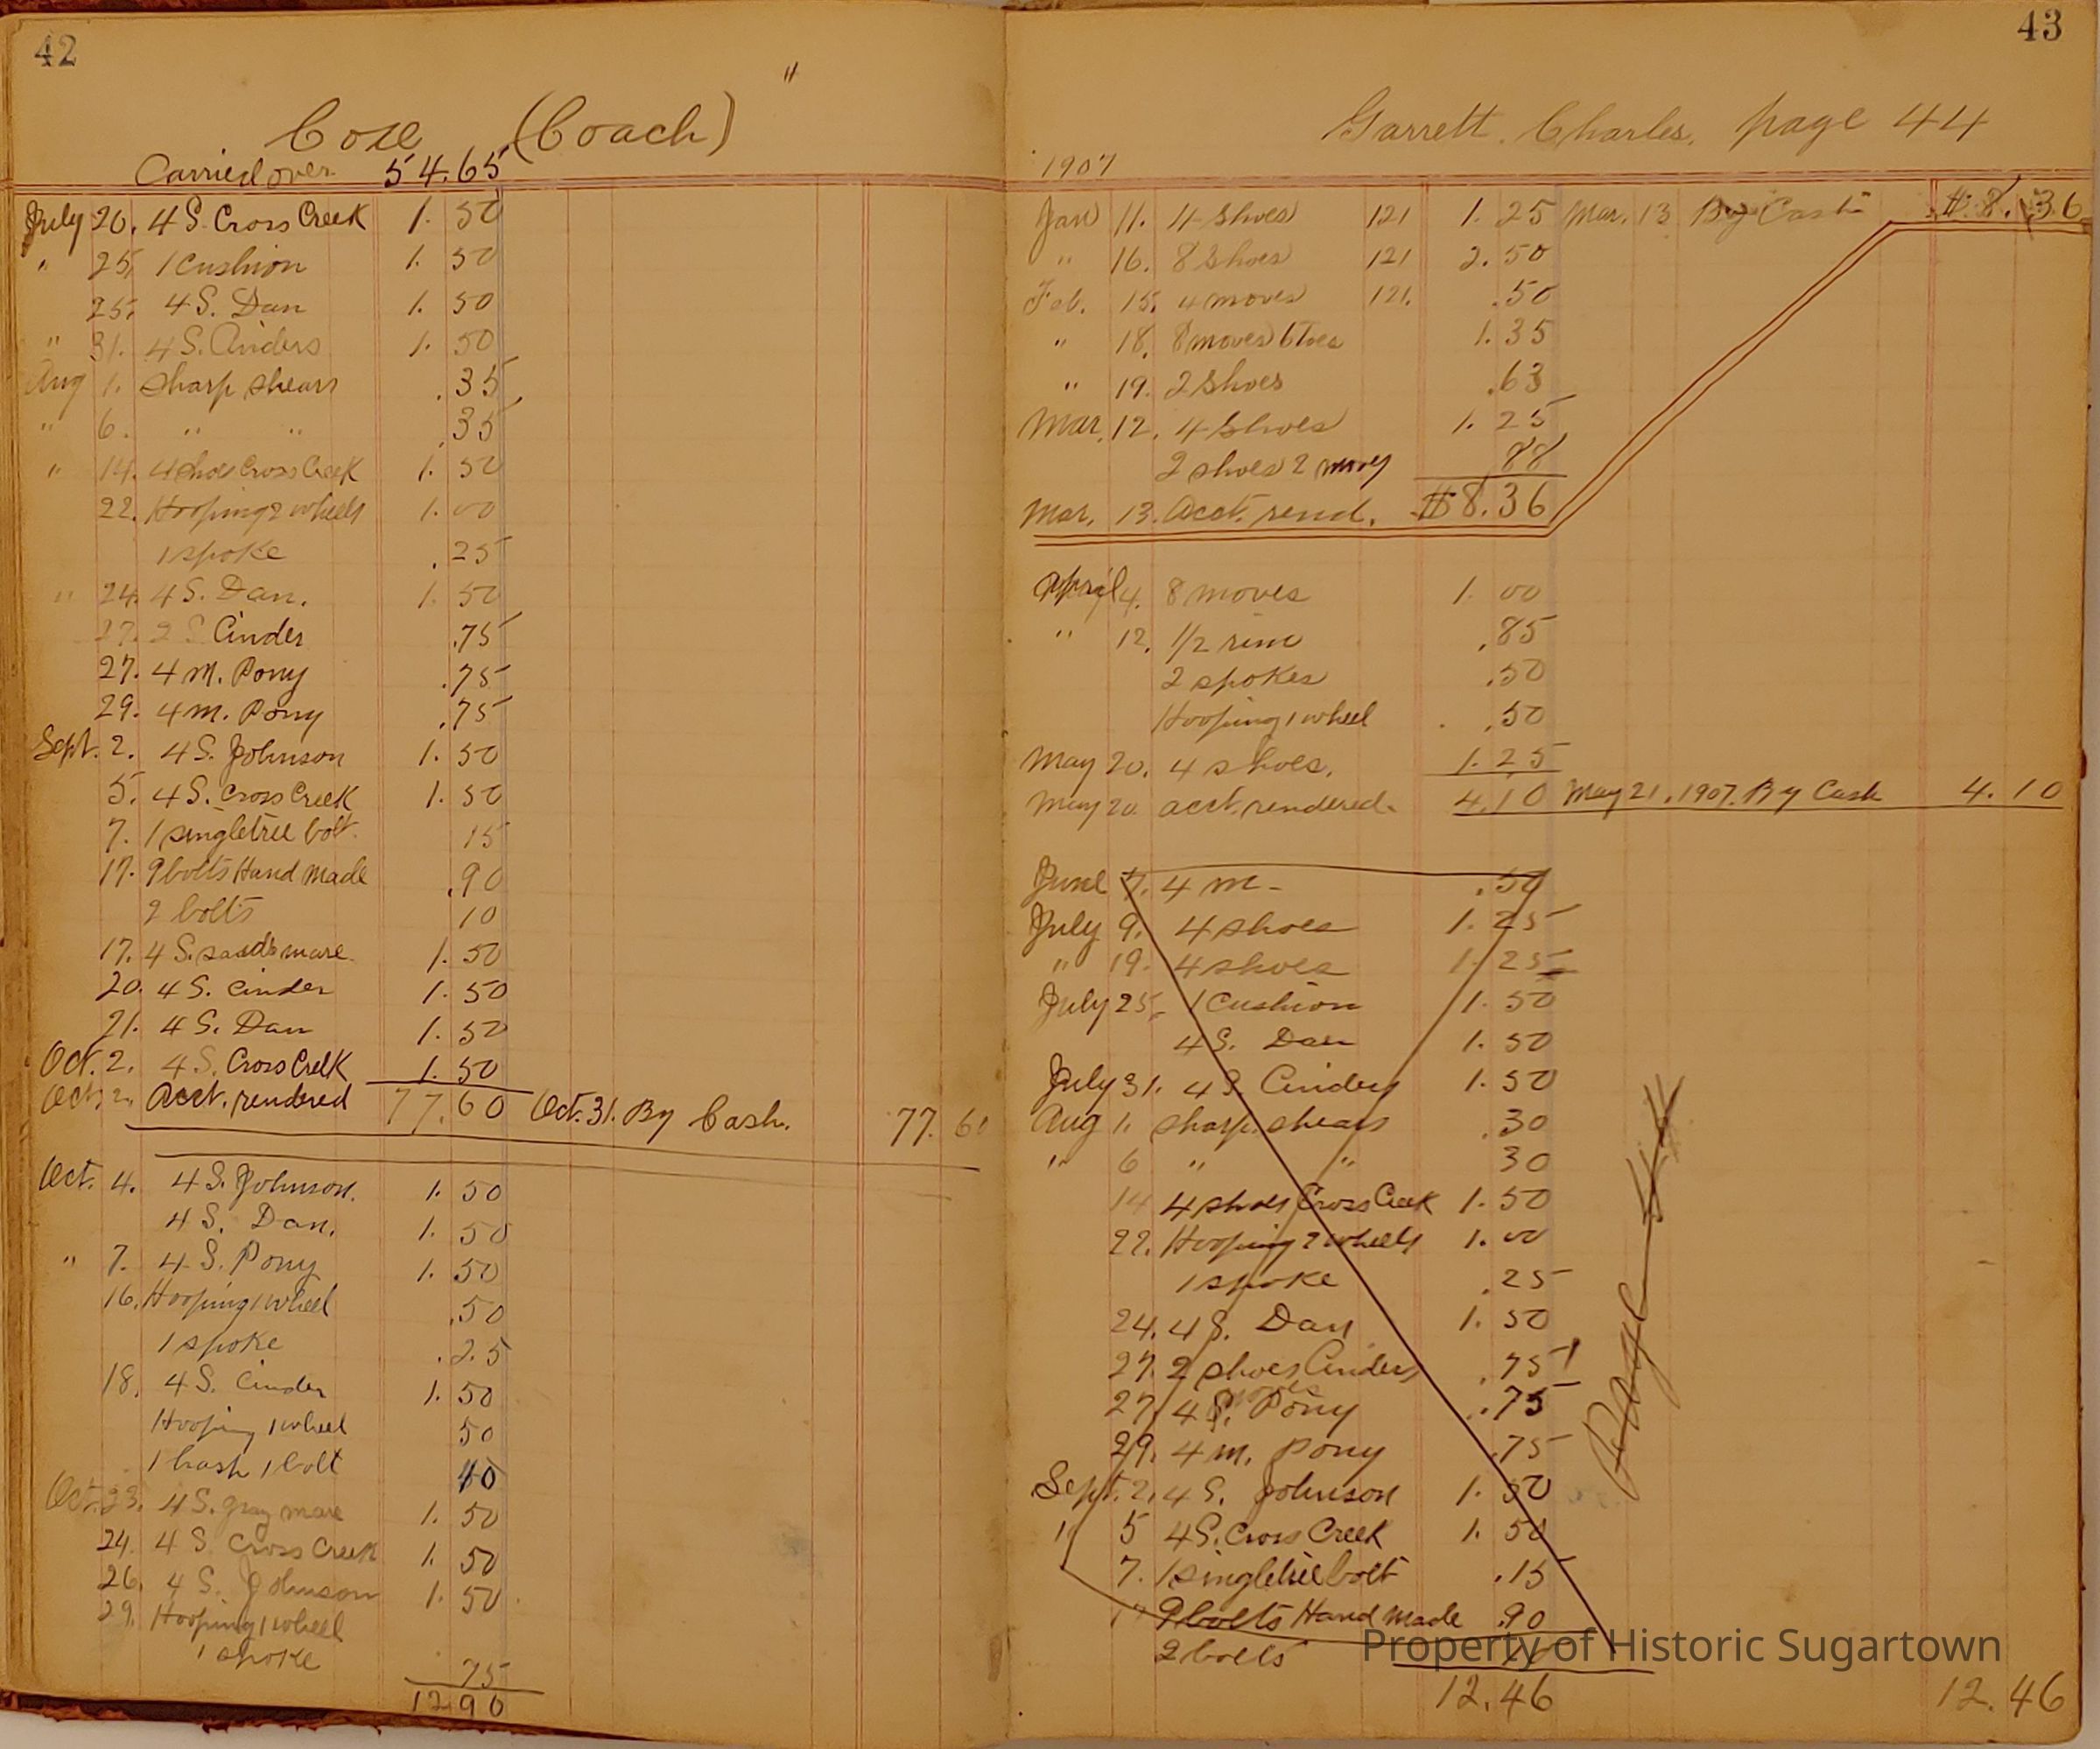 42
"
Coxe (Coach)
Carried over 54.65
July 20. 4 S. Cross Creek 1. 50
" 25, 1 Cushion 1. 50
25, 4 S. Dan 1. 50
" 31. 4 S. Cinders 1. 50
Aug 1. Sharp shears .35
" 6. " " .35
" 14. 4 shoes Cross Creek 1. 50
22. Hooping 2 wheels 1. 00
1 spoke .25
" 24. 4 S. Dan. 1. 50
27. 2 S Cinder .75
27. 4 m. Pony .75
29. 4 m. Pony .75
Sept. 2. 4 S. Johnson 1. 50
5. 4 S. Cross Creek 1. 50
7. 1 singletree bolt. 15
17. 9 bolts Hand Made .90
2 bolts 10
17. 4 S. mare 1. 50
20. 4 S. Cinder 1. 50
21. 4 S. Dan 1. 50
Oct. 2. 4 S. Cross Creek 1. 50
Oct. 2. Acct. rendered 77.60 Oct. 31. By Cash. 77. 60
Oct. 4. 4 S. Johnson. 1. 50
4 S. Dan. 1. 50
" 7. 4 S. Pony 1. 50
16. Hooping 1 wheel .50
1 spoke .25
18. 4 S. Cinder 1. 50
Hooping 1 wheel 50
1 bolt 40
Oct. 23. 4 S. gray mare 1. 50
24. 4 S Cross Creek 1. 50
26. 4 S. Johnson 1. 50
29. Hooping 1 wheel
1 spoke 75
12 90
43
Garrett. Charles. page 44
1907
Jan 11. 4 shoes 121 1. 25 Mar. 13 By Cash $8.36
" 16. 8 shoes 121 2. 50
Feb. 15. 4 moves 121. .50
" 18. 8 moves 6 toes 1. 35
" 19. 2 shoes .63
Mar. 12. 4 shoes 1. 25
2 shoes 2 moves 88
Mar. 13. Acct. rend. $8.36
April 4. 8 moves 1. 00
" 12. 1/2 rim .85
2 spokes .50
Hooping 1 wheel .50
May 20. 4 shoes. 1. 25
May 20. acct. rendered. 4.10 May 21, 1907. By Cash 4. 10
June 7. 4 m- .50
July 9. 4 shoes 1. 25
" 19. 4 shoes 1. 25
July 25, 1 Cushion 1. 50
4 S. Dan 1. 50
July 31. 4 S. Cinders 1. 50
Aug 1. sharp. shears .30
" 6 " " 30
14 4 shoes Cross Creek 1. 50
22. Hooping 2 wheels 1. 00
1 spoke .25
24. 4 S. Dan 1. 50
27. 2 shoes Cinders .75
27 4 moves Pony .75
29. 4 m. Pony .75
Sept. 2, 4 S. Johnson 1. 50
" 5 4 S. Cross Creek 1. 50
7. 1 singletree bolt .15
17 9 bolts Hand Made .90
2 bolts
12.46 12.46
Property of Historic Sugartown